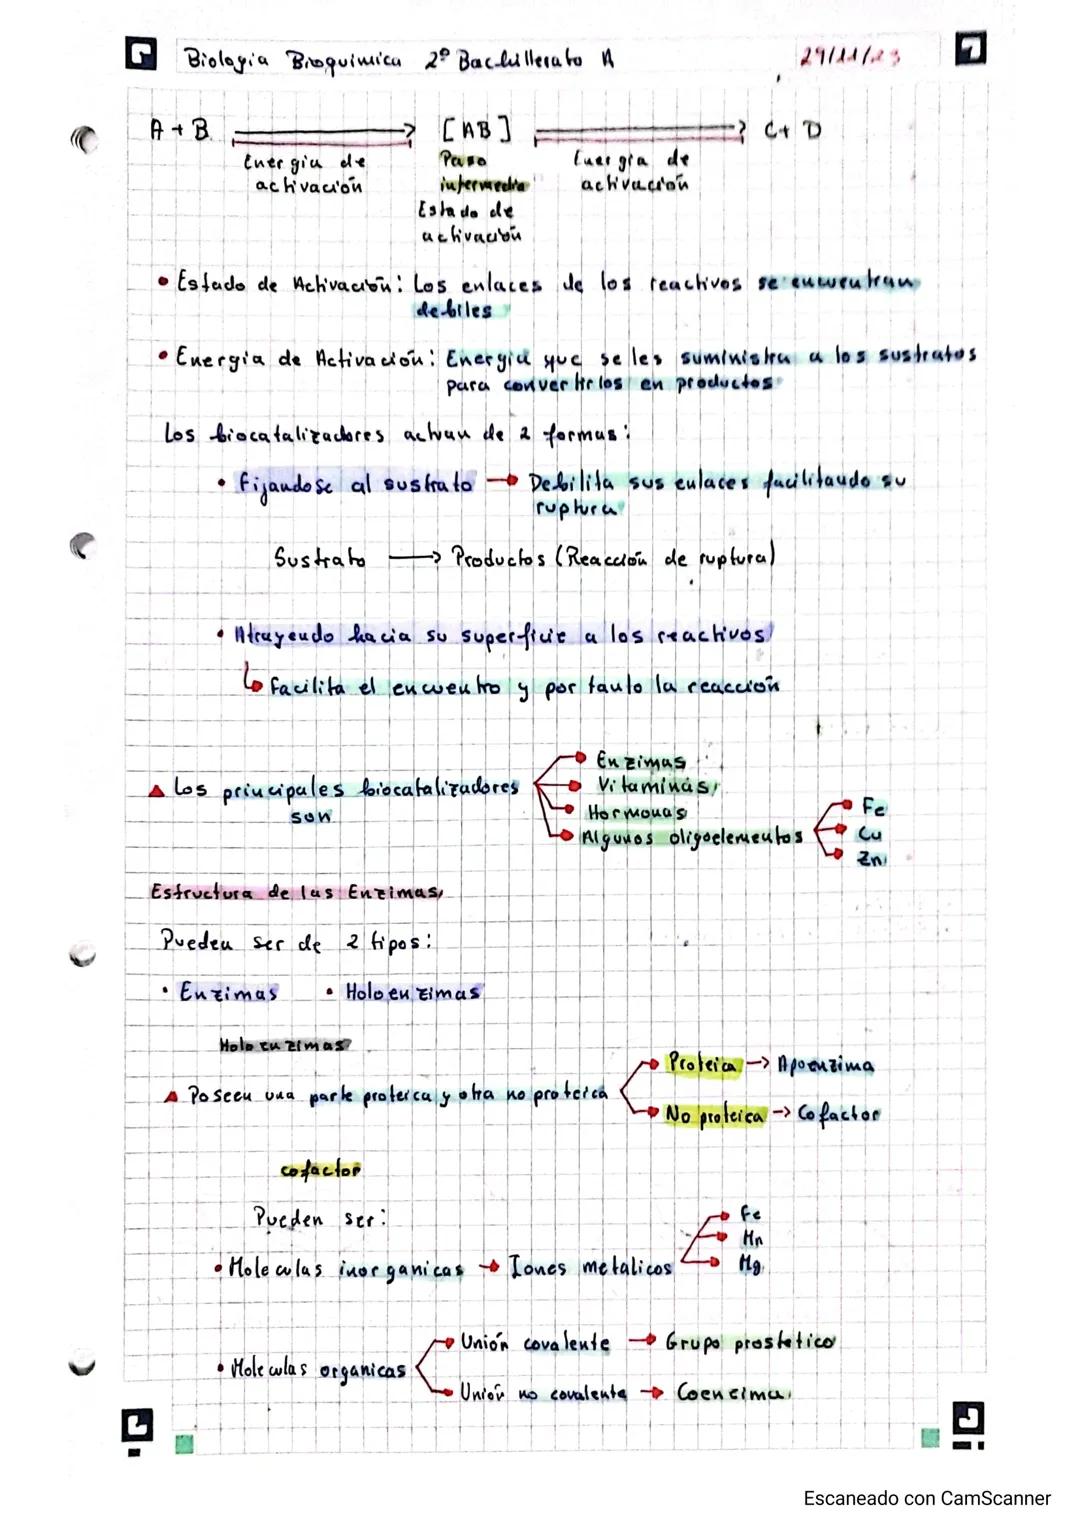 Biologia Bioquimica 2º Bachillerato A 29/11/23
A + B → [AB] → C + D
Energia de activación
Paso intermedio
Estado de activación
Energia de activación
• Estado de Activación: Los enlaces de los reactivos se encuentran
debiles
• Energia de Activación: Energia que se les suministra a los sustratos
para convertirlos en productos
Los biocatalizadores actuan de 2 formas:
• Fijandose al sustrato → Debilita sus enlaces facilitando su
ruptura
Sustrato → Productos (Reacción de ruptura)
• Atrayendo hacia su superficie a los reactivos
↳ Facilita el encuentro y por tanto la reacción
▲ Los principales biocatalizadores
son
Enzimas
Vitaminas
Hormonas
Algunos oligoelementos
Fe
Cu
Zn
Estructura de las Enzimas
Pueden ser de 2 tipos:
• Enzimas • Holoenzimas
Holoenzimas
▲ Poseen una parte proteica y otra no proteica
Proteica → Apoenzima
No proteica → Cofactor
cofactor
Pueden ser:
• Moleculas inorganicas → Iones metalicos
Fe
Mn
Mg
• Moleculas organicas
Unión covalente → Grupo prostetico
Unión no covalente → Coenzima
Escaneado con CamScanner